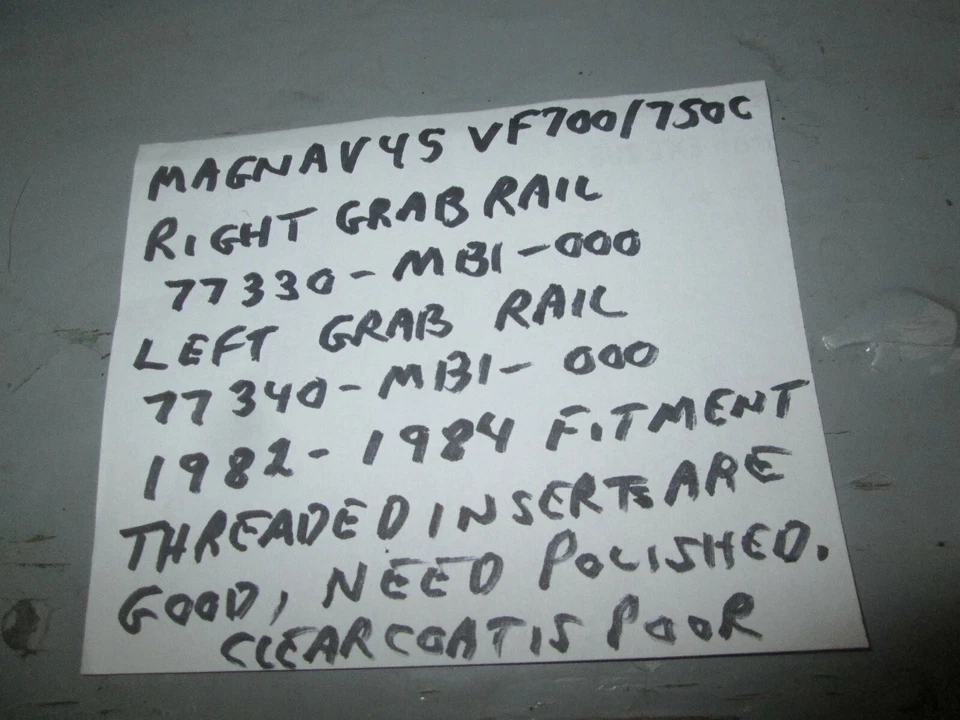 MAGNA V45 VF700/750C
RIGHT GRAB RAIL
77330-MB1-000
LEFT GRAB RAIL
77340-MB1-000
1982-1984 FITMENT
THREADED INSERTS ARE
GOOD, NEED POLISHED.
CLEARCOAT IS POOR